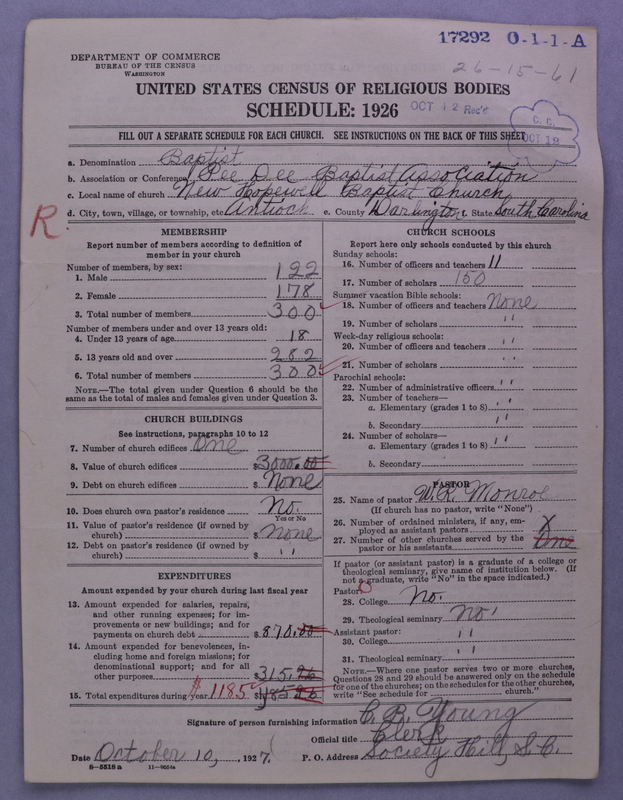 17292 0-1-1-A
DEPARTMENT OF COMMERCE
BUREAU OF THE CENSUS
WASHINGTON
26-15-61
UNITED STATES CENSUS OF RELIGIOUS BODIES
SCHEDULE: 1926
OCT 12 Rec'd
C. C.
OCT 19
FILL OUT A SEPARATE SCHEDULE FOR EACH CHURCH. SEE INSTRUCTIONS ON THE BACK OF THIS SHEET
a. Denomination Baptist
b. Association or Conference Pee Dee Baptist Association
c. Local name of church New Hopewell Baptist Church
d. City, town, village, or township, etc. Antioch e. County Darlington f. State South Carolina
R
MEMBERSHIP
Report number of members according to definition of
member in your church
Number of members, by sex:
1. Male 122
2. Female 178
3. Total number of members 300
Number of members under and over 13 years old:
4. Under 13 years of age 18
5. 13 years old and over 282
6. Total number of members 300
NOTE.—The total given under Question 6 should be the
same as the total of males and females given under Question 3.
CHURCH BUILDINGS
See instructions, paragraphs 10 to 12
7. Number of church edifices One
8. Value of church edifices $3000.00
9. Debt on church edifices $None
10. Does church own pastor's residence? No.
Yes or No
11. Value of pastor's residence (if owned by
church) $None
12. Debt on pastor's residence (if owned by
church) $ "
EXPENDITURES
Amount expended by your church during last fiscal year
13. Amount expended for salaries, repairs,
and other running expenses; for im-
provements or new buildings; and for
payments on church debt $870.00
14. Amount expended for benevolences, in-
cluding home and foreign missions; for
denominational support; and for all
other purposes $315.26
15. Total expenditures during year $1185 $1185.26
CHURCH SCHOOLS
Report here only schools conducted by this church
Sunday schools:
16. Number of officers and teachers 11
17. Number of scholars 150
Summer vacation Bible schools:
18. Number of officers and teachers None
19. Number of scholars "
Week-day religious schools:
20. Number of officers and teachers "
21. Number of scholars "
Parochial schools:
22. Number of administrative officers "
23. Number of teachers—
a. Elementary (grades 1 to 8) "
b. Secondary "
24. Number of scholars—
a. Elementary (grades 1 to 8) "
b. Secondary
PASTOR
25. Name of pastor W. R. Monroe
(If church has no pastor, write "None")
26. Number of ordained ministers, if any, em-
ployed as assistant pastors X
27. Number of other churches served by the
pastor or his assistants One
If pastor (or assistant pastor) is a graduate of a college or
theological seminary, give name of institution below. (If
not a graduate, write "No" in the space indicated.)
Pastor:
28. College No.
29. Theological seminary No.
Assistant pastor:
30. College "
31. Theological seminary "
NOTE.—Where one pastor serves two or more churches,
Questions 28 and 29 should be answered only on the schedule
for one of the churches; on the schedules for the other churches,
write "See schedule for church."
Signature of person furnishing information C. B. Young
Official title Clerk
Date October 10, 1927. P. O. Address Society Hill, S. C.
8-5518 a 11-9064a